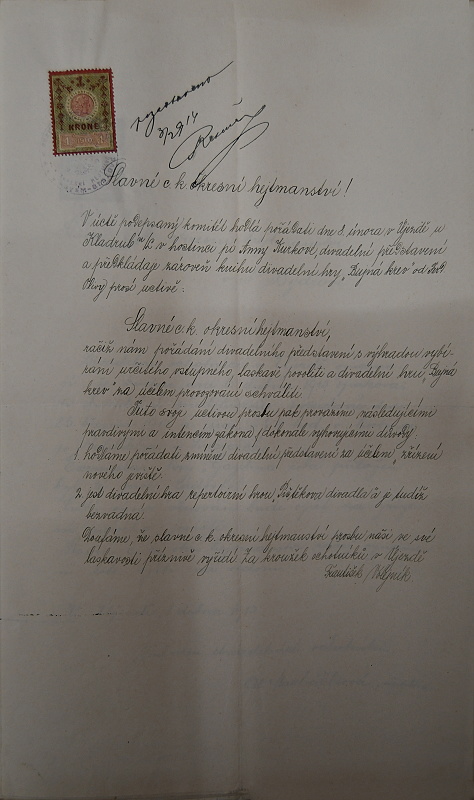 1
KRONE
3/2 914
Slavné c k okresní hejtmanství!
V úctě podepsaný komitét hodlá pořádati dne 8. února v Újezdě u
Kladrub n/L v hostinci pí Anny Kurkové, divadelní představení
a předkládaje zároveň knihu divadelní hry „Bujná krev" od
prosí uctivě:
Slavné c k okresní hejtmanství,
račiž nám pořádání divadelního představení s výhradou vybí-
rání určitého vstupného, laskavě povoliti a divadelní hru „Bujná
krev" za účelem provozování schváliti.
Tuto svoji uctivou prosbu pak provázíme následujícími
pravdivými a intencím zákona dokonale vyhovujícími důvody:
1. hodláme pořádati zmíněné divadelní představení za účelem „zřízení
nového jeviště.
2. jest divadelní hra repertoirní hrou „Pištěkova divadla" a je tudíž
bezvadna.
Doufáme, že slavné c k okresní hejtmanství prosbu naši ve své
laskavosti příznivě vyřídí. Za kroužek ochotníků v Újezdě
František